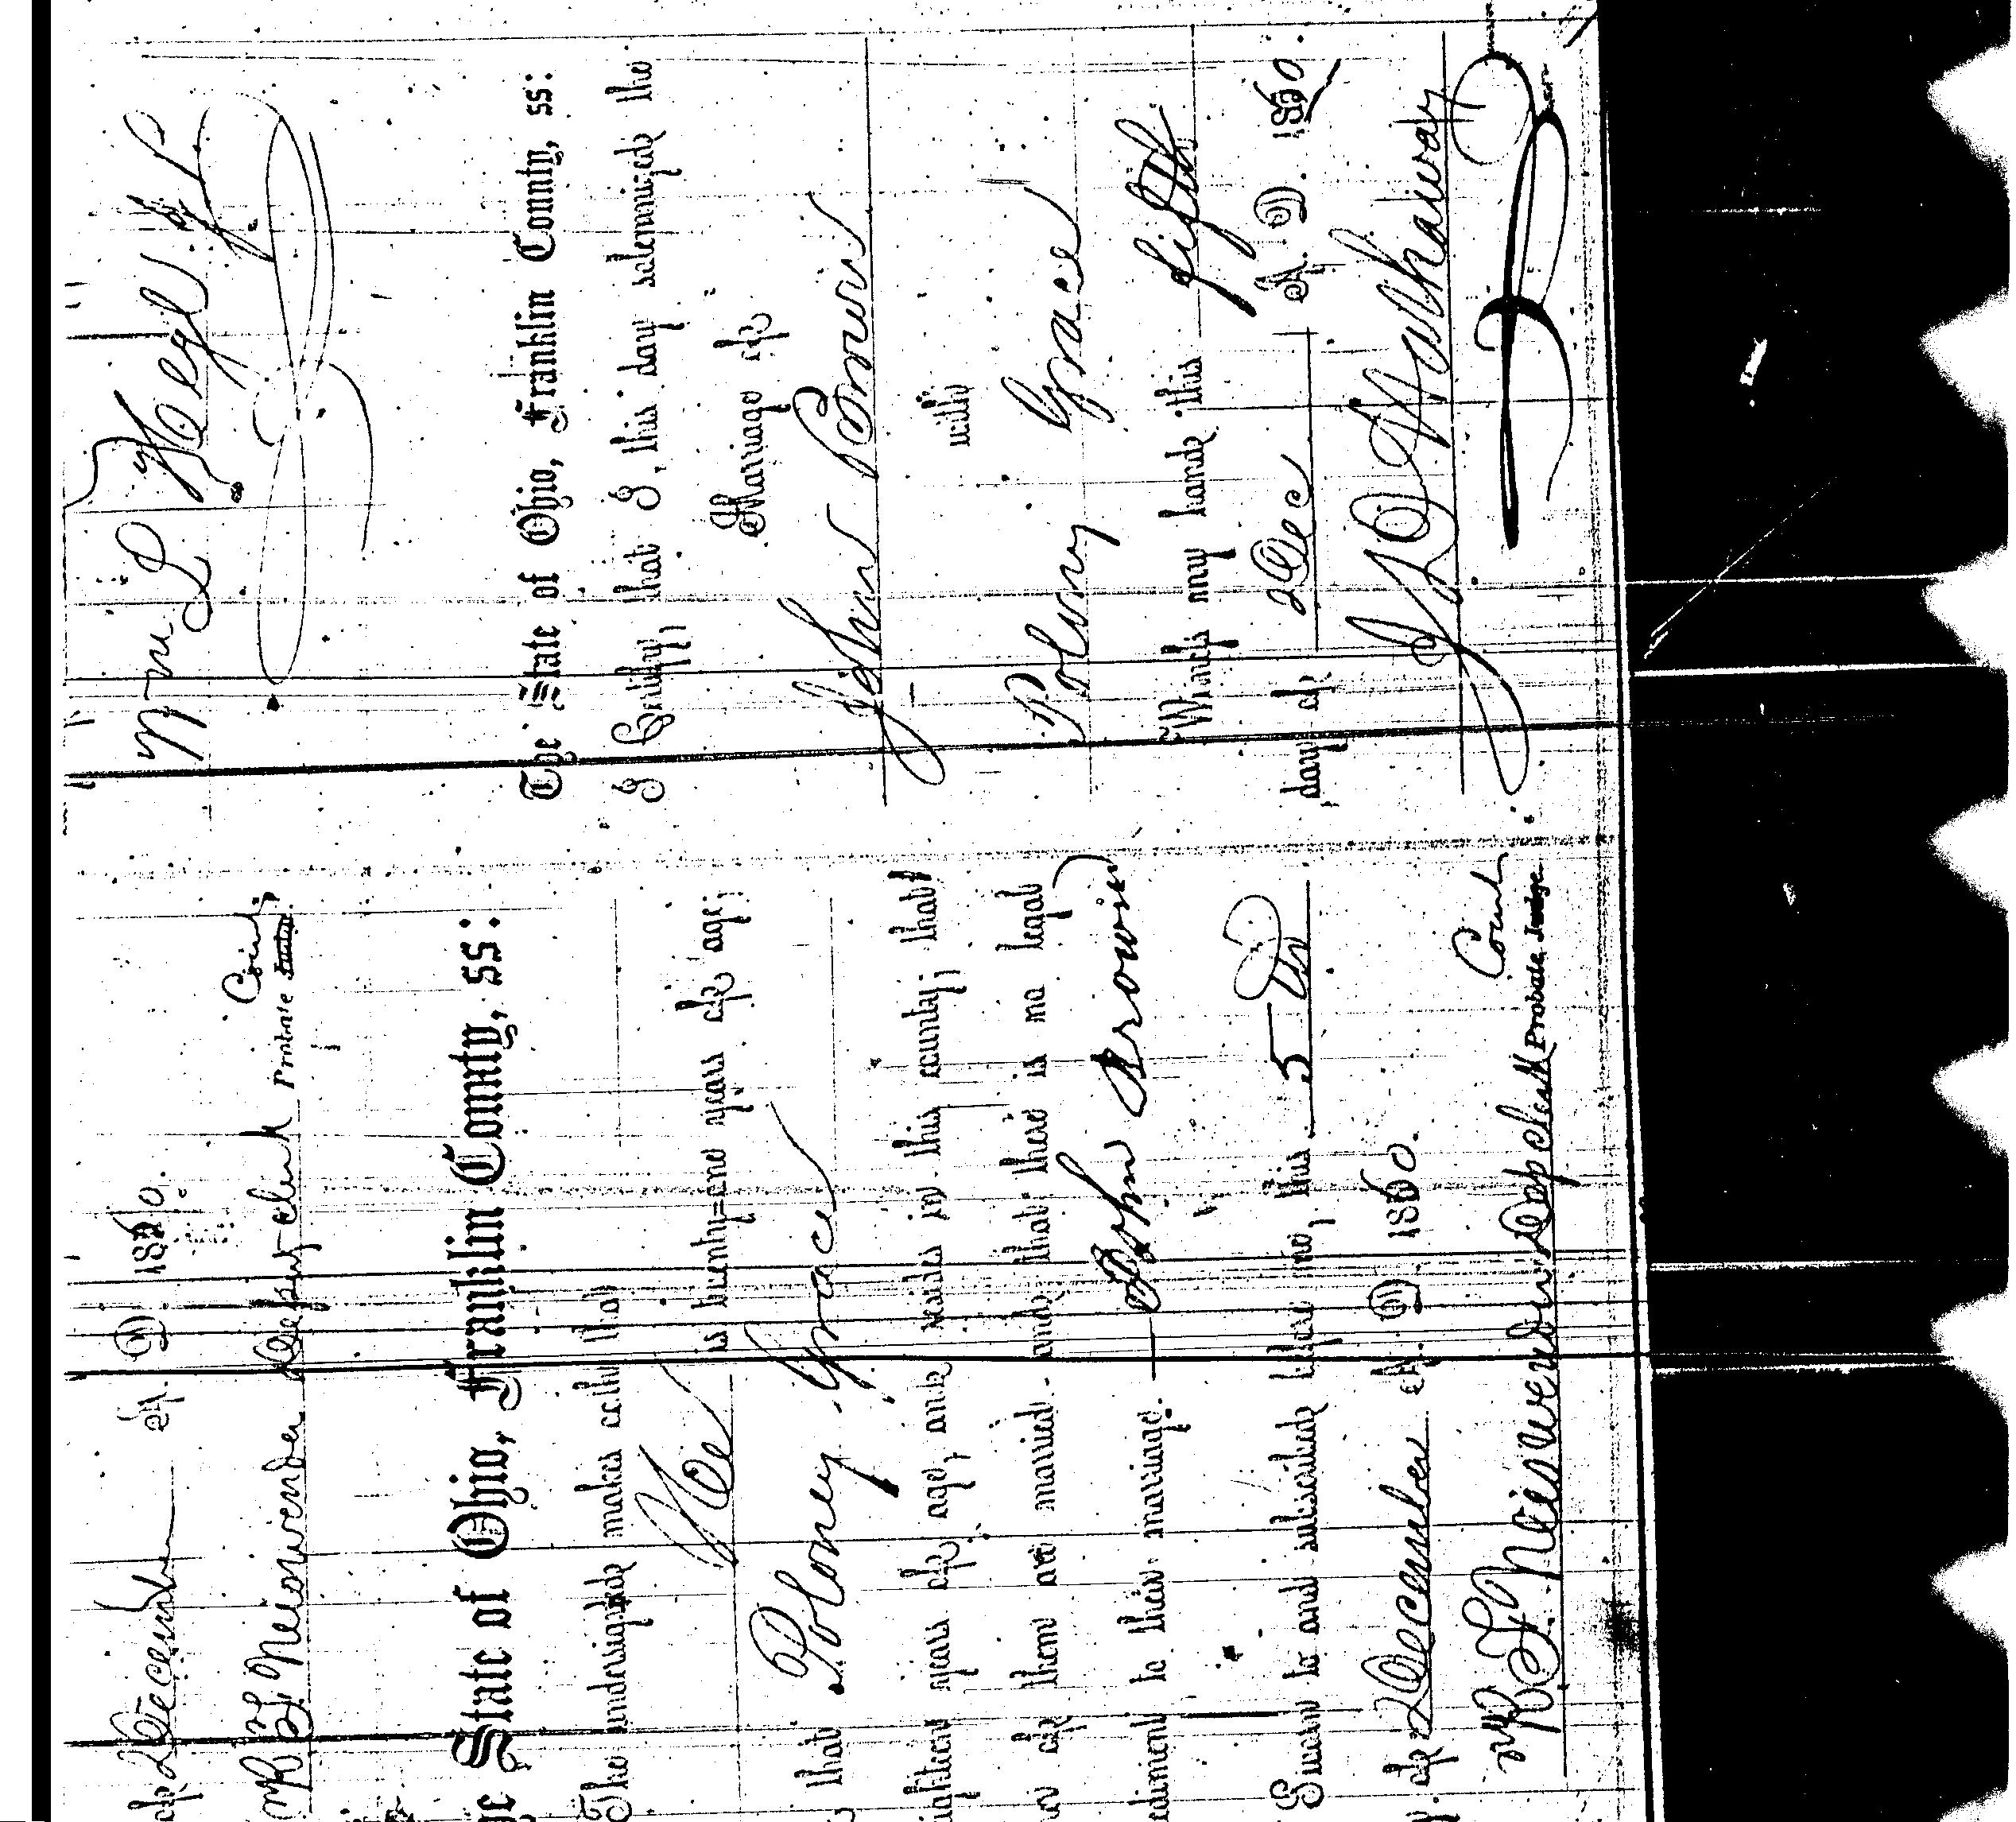 of December A. D. 1860.
Deputy Clerk Probate Court
The State of Ohio, Franklin County, ss:
The undersigned makes oath that
He is twenty-one years of age,
that Poloney Grace
eighteen years of age, and resides in this county; that
of them are married and that there is no legal
impediment to their marriage.
John Brown
Sworn to and subscribed before me, this 5 th
of December A. D. 1860.
Dep Clerk Probate Court
Wm L Hegl J P
The State of Ohio, Franklin County, ss:
I Certify, that I, this day solemnized the
Marriage of
John Brown
with
Polony Grace
Witness my hand this fifth
day of Dec A. D. 1860.
J D Hathaway